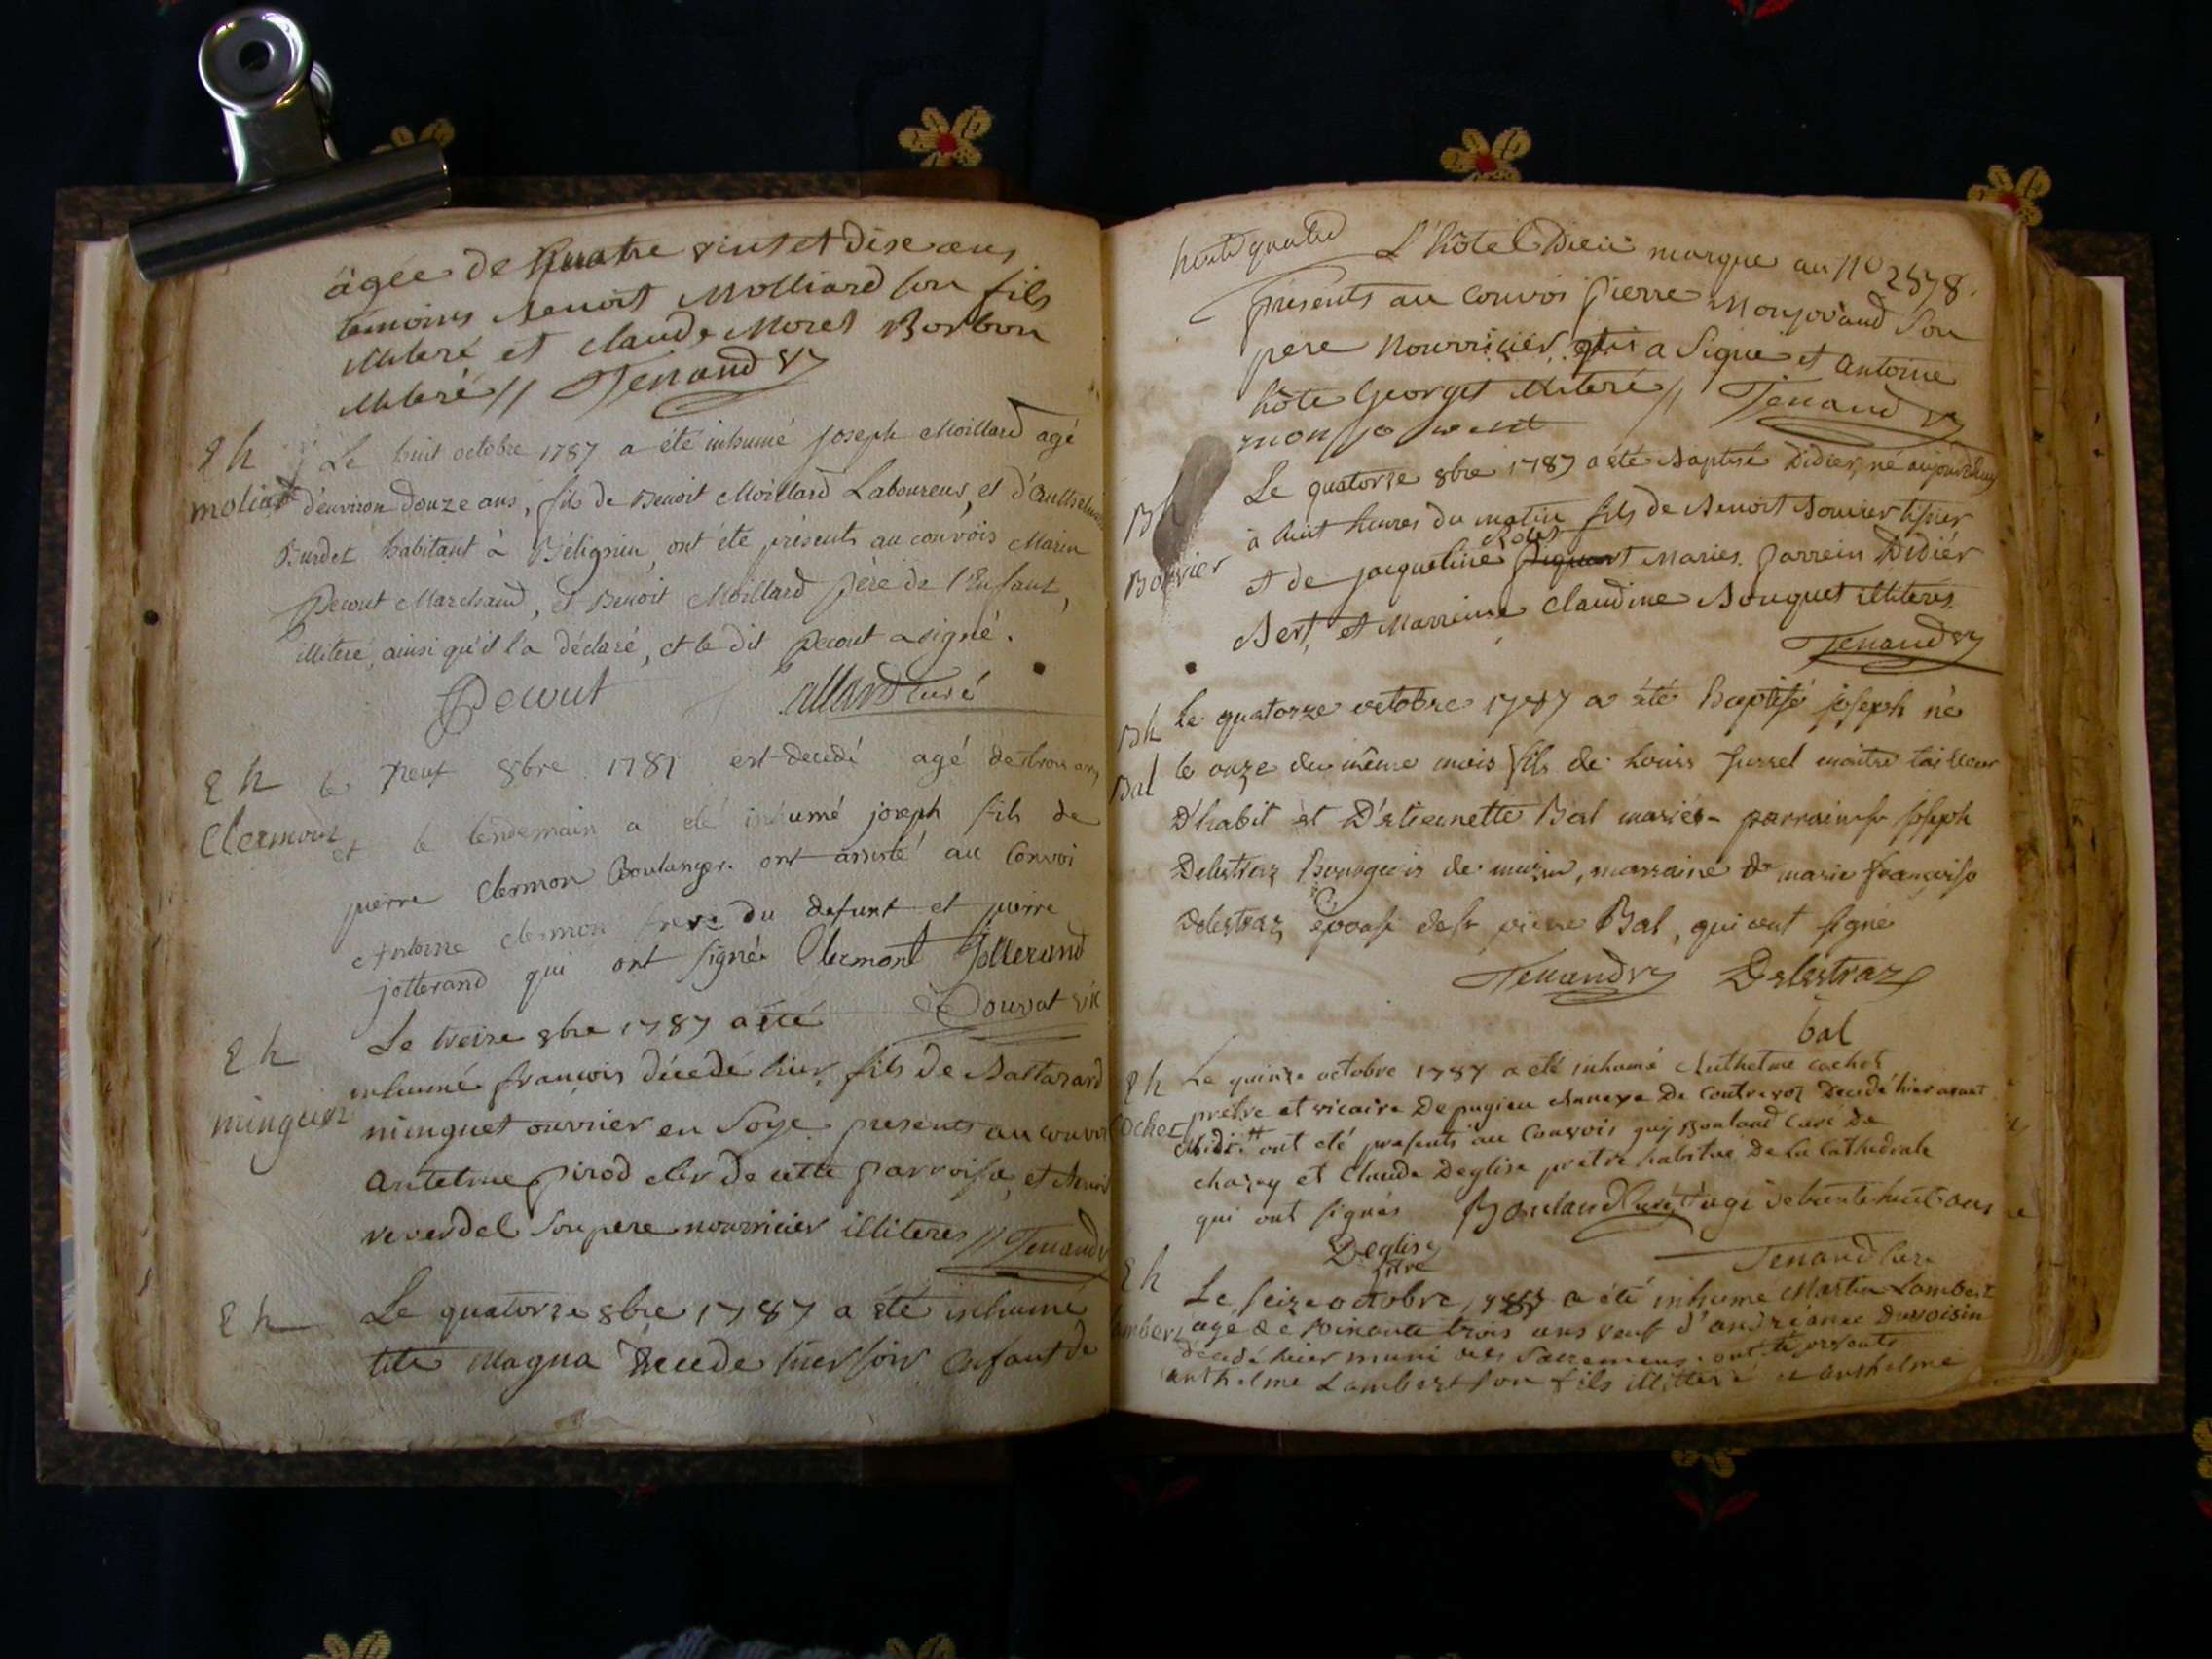 âgée de quatre vint et dise ans
temoins Benoit Molliard son fils
illiteré et claude Morel Borbon
illiteré // Tenand vic
Eh Le huit octobre 1787 a été inhumé Joseph Moillard agé
moliard d'environ douze ans, fils de Benoit Moillard Laboureur, et d'Anthelmette
Burdet habitant à Béligneu, ont été présents au convois Marin
Decout Marchand, et Benoit Moillard père de l'Enfant,
illiteré, ainsi qu'il l'a déclaré, et le dit Decout a signé.
Decout curé
Eh le neuf 8bre 1787 est decedé agé de trois ans
Clermont et le lendemain a été inhumé joseph fils de
pierre clermon Boulanger. ont assisté au Convoi
Antoine clermon frere du defunt et pierre
jotterand qui ont signés Clermont Jotterand
Douvat vic
Eh Le treize 8bre 1787 a été
inhumé françois décedé hier, fils de Baltazard
minguet minguet ouvrier en Soye presents au convoi
antelme pirod clerc de cette parroisse, et Benoit
reverdel son pere nourricier illiteres // Tenand v
Eh Le quatorze 8bre 1787 a été inhumé
tite Magna decede hier soir enfant de
L'hôtel Dieu marque au N° 2578.
presents au convoi pierre Monjovand Son
pere nourricier, qui a Signe et antoine
hôte Georget illiteré // Tenand vic
monjovent
Bh Le quatorze 8bre 1787 a été Baptisé Didier, né aujourdhuy
Bouvier à huit heures du matin fils de Benoit Bouvier
et de jacqueline Maries. parrein Didiér
Bert, et Marreine Claudine Bouquet illiteres
Tenand vic
Bh Le quatorze octobre 1787 a été Baptisé joseph né
Bal le onze du même mois fils de Louis maitre tailleur
D'habit et D'etiennette Bal mariés parrain sr joseph
Delestraz Bourgeois de, marraine de marie françoise
Delestraz épouse de sr pierre Bal, qui ont signé
Tenand vic Delestraz
bal
Eh Le quinze octobre 1787 a été inhumé Anthelme cochet
Cochet pretre et vicaire De pugieu Annexe De Contrevoz Decedé hier avant
Midi. ont été presents au Convois guy Bouland Curé De
chazey et Claude Deglise pretre habitué De la Cathedrale
qui ont signés Bouland Curé agé de trente huit ans
Deglise ptre Tenand
Eh Le seize octobre 1787 a été inhume Martin Lambert
Lambert agé de soixante trois ans veuf d'andréanne Duvoisin
décedé hier muni des Sacremens. ont été presents
anthelme Lambert son fils illitteré et anthelme